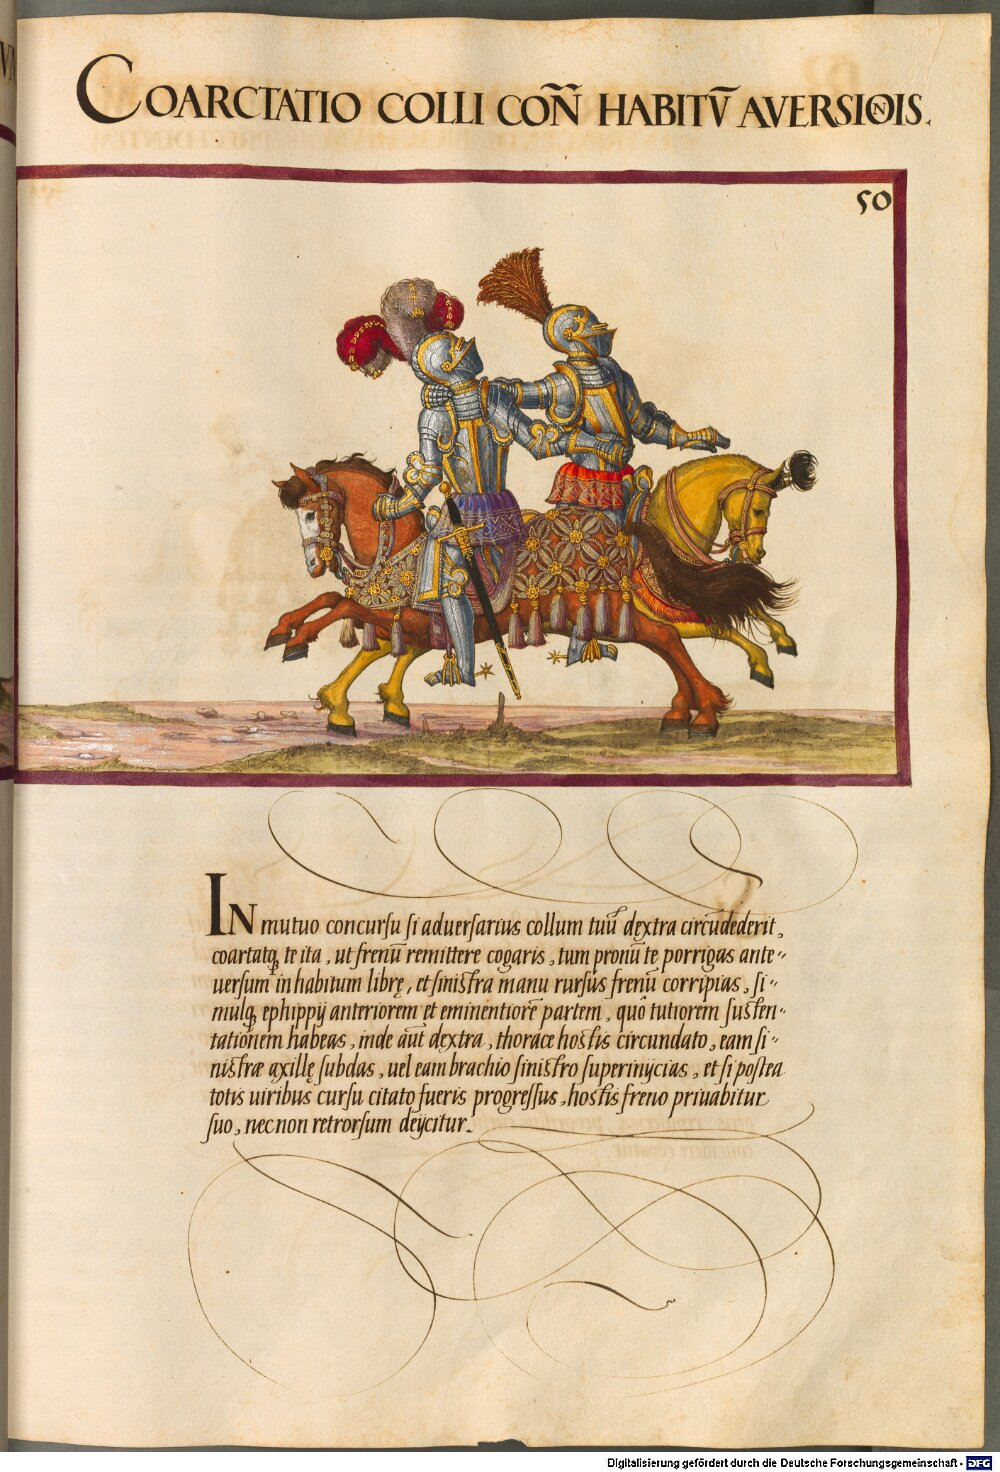 COARCTATIO COLLI COÑ HABITV̄ AVERSIOIS.
50
IN mutuo concursu si aduersarius collum tuū dextra circūdederit,
coartatq; te ita, ut frenū remittere cogaris, tum pronū te porrigas ante-
uersum in habitum librę, et sinistra manu rursus frenū corripias, si-
mulq; ephippij anteriorem et eminentiorē partem, quô tutiorem susten-
tationem habeas, inde aūt dextra, thorace hostis circundato, eam si-
nistræ axillę subdas, uel eam brachio sinistro superinijcias, et si postea
totis uiribus cursu citato fueris progressus, hostis freno priuabitur
suo, nec non retrorsum deijcitur.
Digitalisierung gefördert durch die Deutsche Forschungsgemeinschaft - DFG